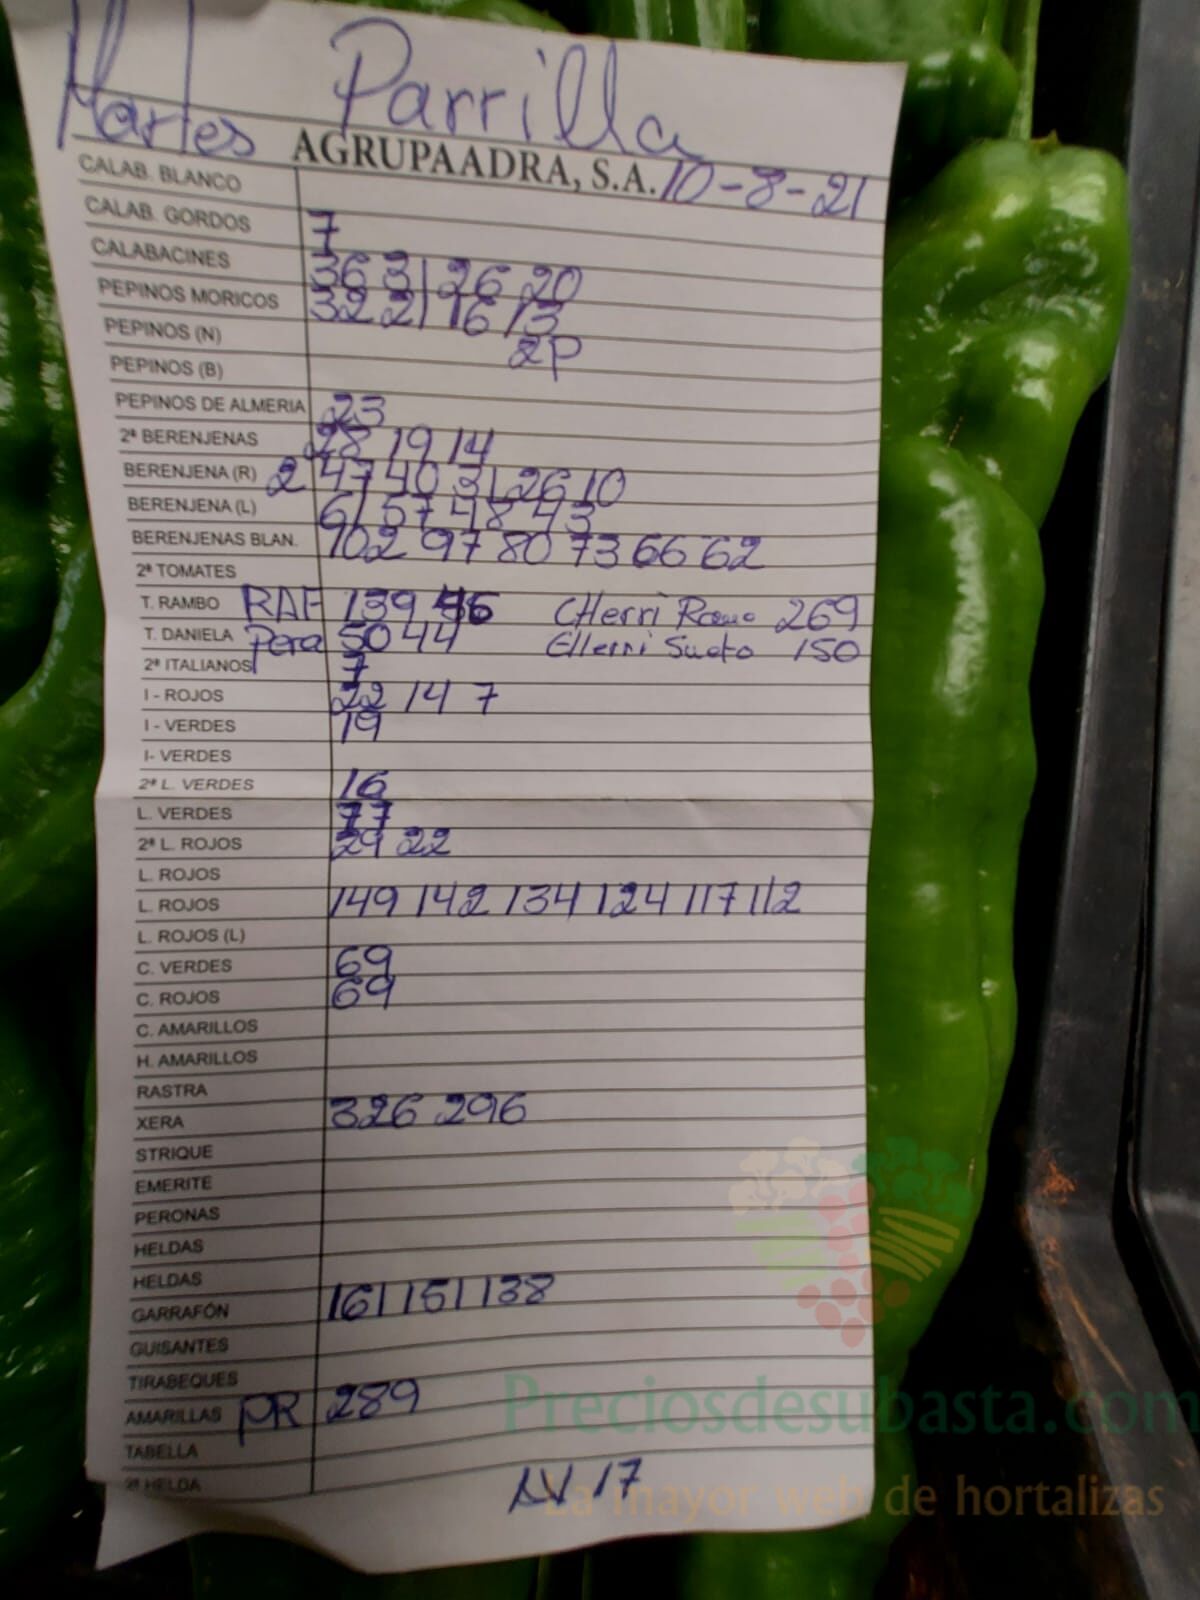 Martes Parrilla
AGRUPAADRA, S.A. 10-8-21
CALAB. BLANCO
CALAB. GORDOS 7
CALABACINES 36 31 26 20
PEPINOS MORICOS 32 22 16 13
PEPINOS (N) 2P
PEPINOS (B)
PEPINOS DE ALMERIA 23
2ª BERENJENAS 28 19 14
BERENJENA (R) 2 47 40 31 26 10
BERENJENA (L) 61 57 48 43
BERENJENAS BLAN. 102 97 80 73 66 62
2ª TOMATES
T. RAMBO RAF 139 CHerri Ramo 269
T. DANIELA Pera 50 44 CHerri Suelto 150
2ª ITALIANOS 7
I - ROJOS 22 14 7
I - VERDES 19
I- VERDES
2ª L. VERDES 16
L. VERDES 77
2ª L. ROJOS 29 22
L. ROJOS
L. ROJOS 149 142 134 124 117 112
L. ROJOS (L)
C. VERDES 69
C. ROJOS 69
C. AMARILLOS
H. AMARILLOS
RASTRA
XERA 326 296
STRIQUE
EMERITE
PERONAS
HELDAS
HELDAS
GARRAFÓN 161 151 138
GUISANTES
TIRABEQUES
AMARILLAS PR 289
TABELLA
2ª HELDA 17
Preciosdesubasta.com
La mayor web de hortalizas